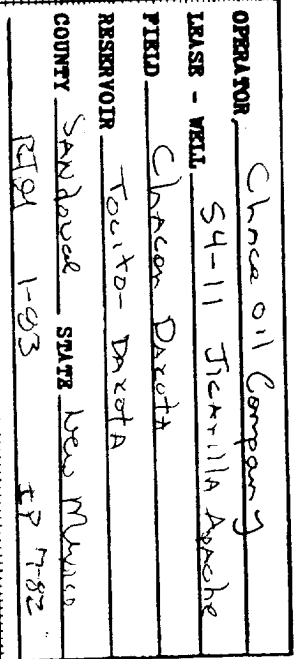 OPERATOR Chace Oil Company
LEASE - WELL 54-11 Jicarilla Apache
FIELD Chacon Dakota
RESERVOIR Tocito-Dakota
COUNTY Sandoval STATE New Mexico
1-83 IP 7-82